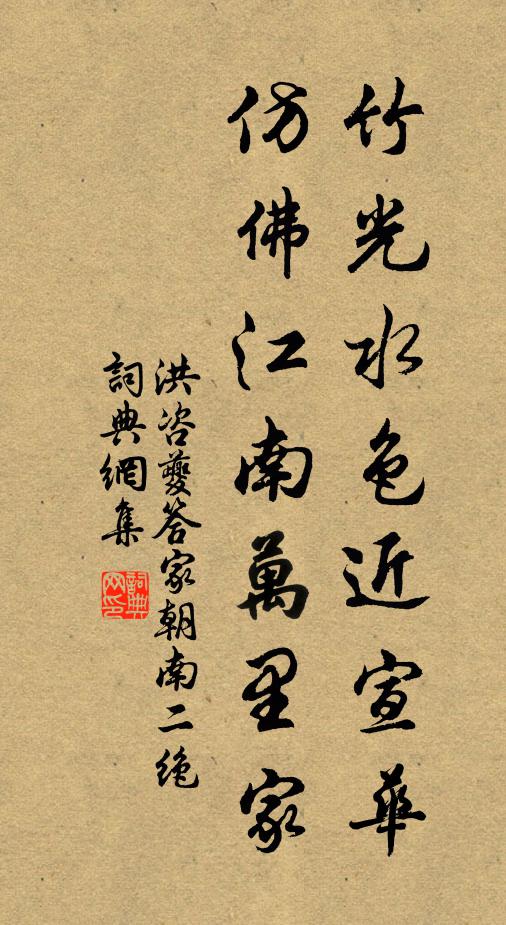 竹光水色近宣華
仿佛江南萬里家
洪咨夔答家朝南二絶
詞典網集
詞典网印